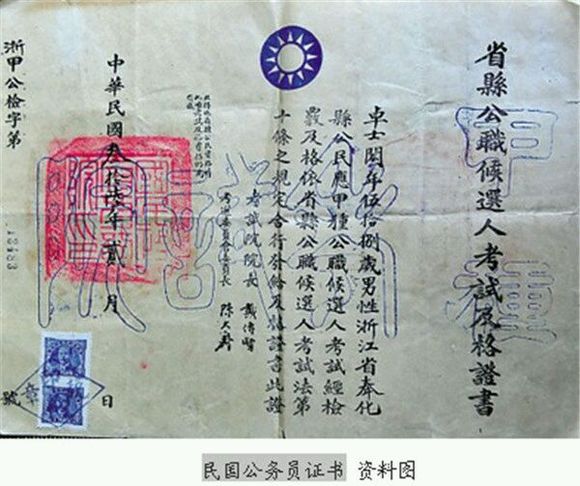 省縣公職候選人考試及格證書
卓士閎年伍拾捌歲男性浙江省奉化
縣公民應甲種公職候選人考試經檢
覈及格依省縣公職候選人考試法第
十條之規定合行發給及格證書此證
考試院院長 戴傳賢
考選委員會委員長 陳大齊
中華民國叁拾柒年貳月 日
浙甲公檢字第 號
甲種
民国公务员证书 资料图